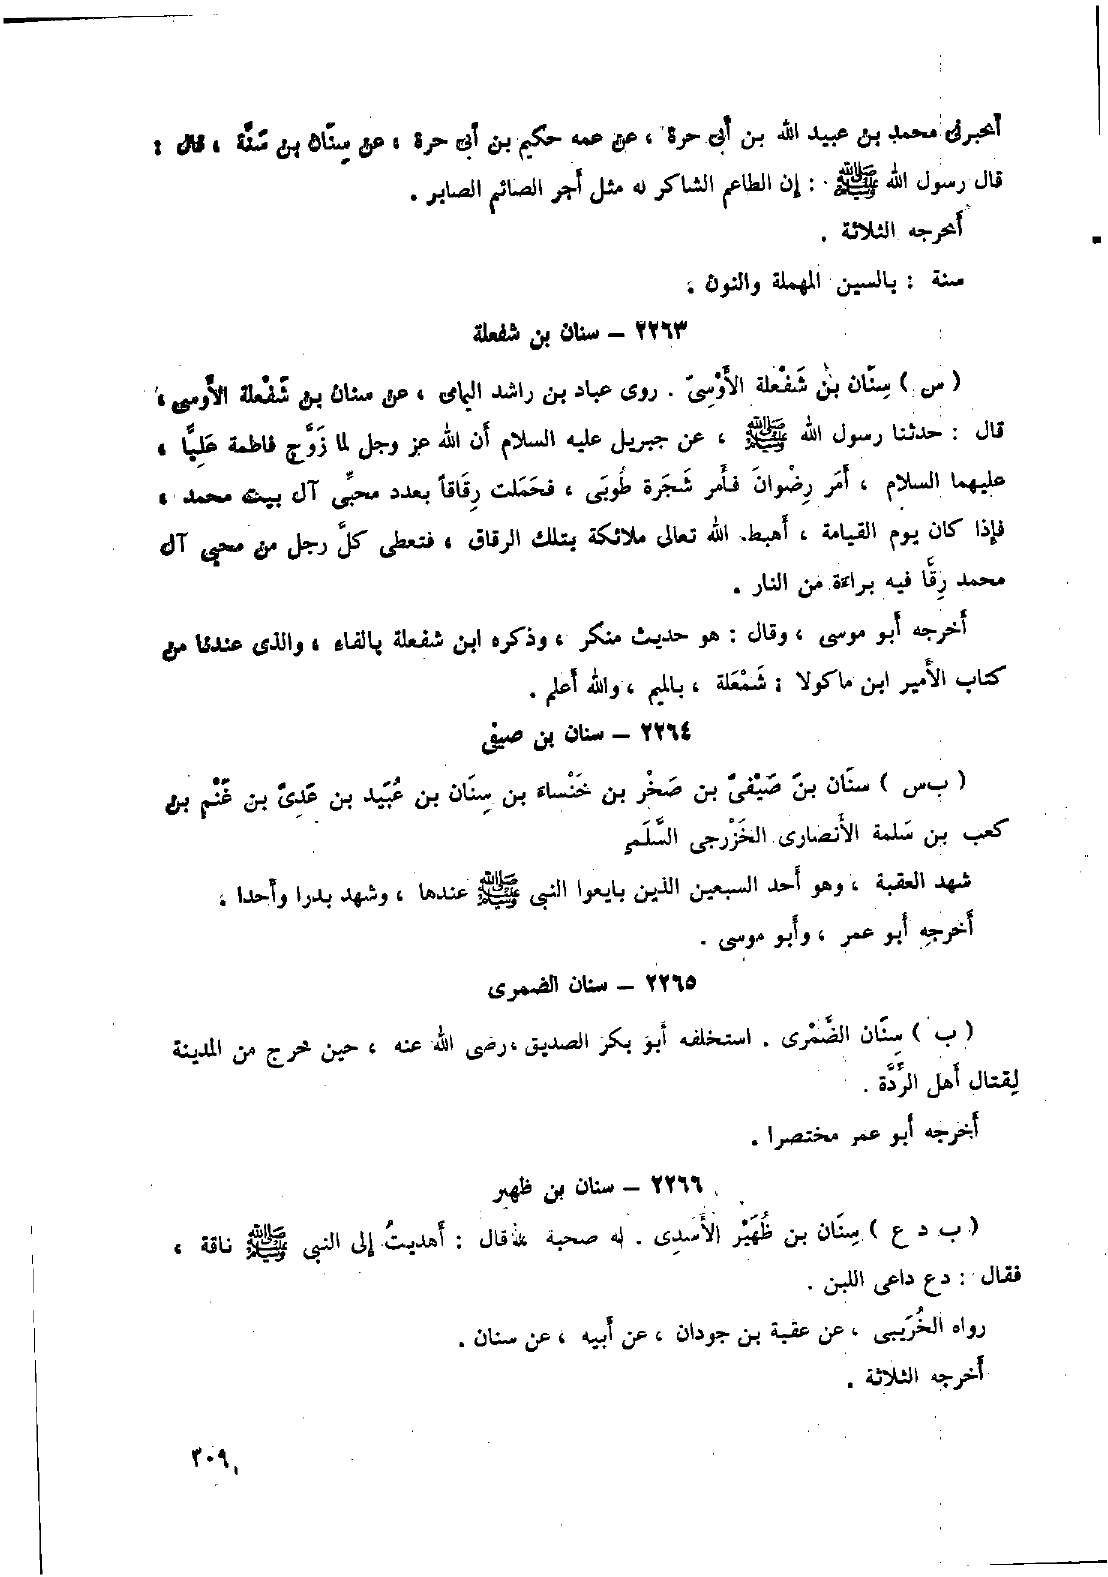 أخبرنى محمد بن عبيد الله بن أبى حرة ، عن عمه حكيم بن أبى حرة ، عن سِنَان بن سَنَّة ، قال :
قال رسول الله ﷺ : إن الطاعم الشاكر له مثل أجر الصائم الصابر .
أخرجه الثلاثة .
سنة : بالسين المهملة والنون .
٢٢٦٣ – سنان بن شفعلة
( س ) سِنَان بنُ شَفْعلة الأَوْسِىّ . روى عباد بن راشد اليمامى ، عن سنان بن شَفْعلة الأَوسى ،
قال : حدثنا رسول الله ﷺ ، عن جبريل عليه السلام أن الله عز وجل لما زَوَّج فاطمة عَلِيًّا ،
عليهما السلام ، أَمَر رِضْوانَ فأَمر شَجَرة طُوبَى ، فحَمَلت رِقَاقاً بعدد محبِّى آل بيت محمد ،
فإذا كان يوم القيامة ، أهبط الله تعالى ملائكة بتلك الرقاق ، فتعطى كلَّ رجل من محبى آل
محمد رِقًّا فيه براءة من النار .
أخرجه أبو موسى ، وقال : هو حديث منكر ، وذكره ابن شفعلة بالفاء ، والذى عندنا من
كتاب الأَمير ابن ماكولا : شَمْعَلة ، بالميم ، والله أعلم .
٢٢٦٤ – سنان بن صيفى
( ب س ) سنَان بنَ صَيْفىّ بن صَخْر بن خَنْساءَ بن سِنَان بن عُبَيد بن عَدِىّ بن غَنْم بن
كعب بن سَلمة الأَنصارى الخَزْرجى السَّلَمى
شهد العقبة ، وهو أحد السبعين الذين بايعوا النبى ﷺ عندها ، وشهد بدرا وأحدا .
أخرجه أبو عمر ، وأبو موسى .
٢٢٦٥ – سنان الضمرى
( ب ) سِنَان الضَّمْرى . استخلفه أبو بكر الصديق ، رضى الله عنه ، حين خرج من المدينة
لِقتال أهل الرِّدَّة .
أخرجه أبو عمر مختصرا .
٢٢٦٦ – سنان بن ظهير
( ب د ع ) سِنَان بن ظُهَيْر الأَسَدِى . له صحبة قال : أَهديتُ إلى النبى ﷺ ناقة ،
فقال : دع داعى اللبن .
رواه الخُرَيبى ، عن عقبة بن جودان ، عن أبيه ، عن سنان .
أخرجه الثلاثة .
٣٠٩